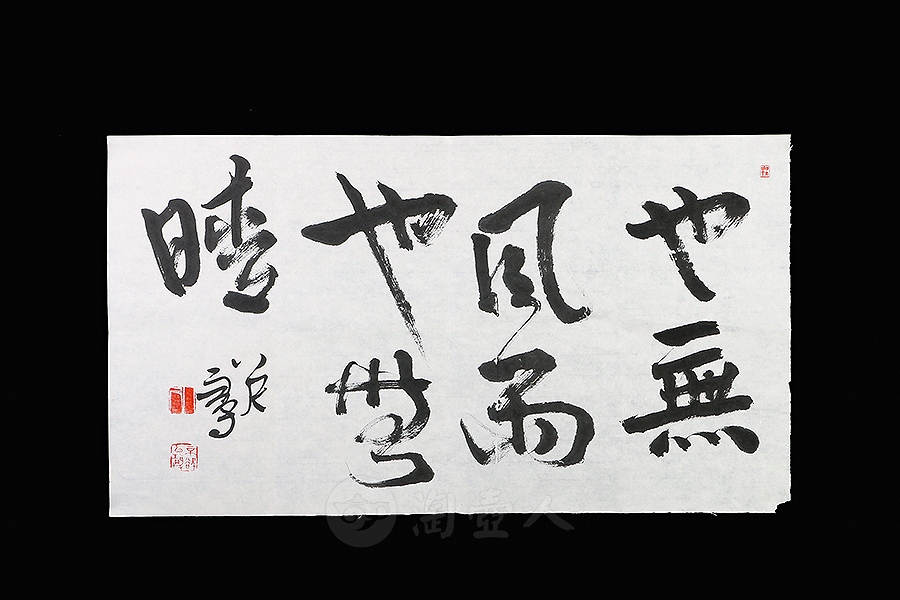 也無
風雨
也無
晴
淘壺人